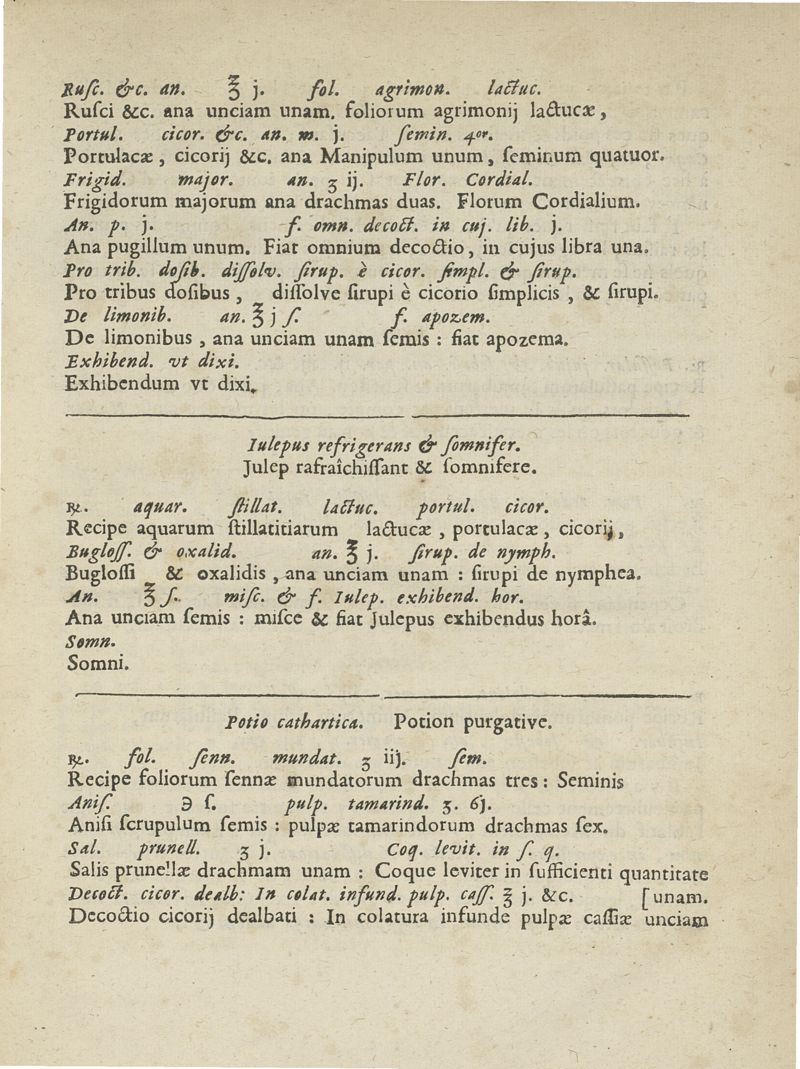 Ruſc. &c. an. ℥ j. fol. agrimon. lactuc.
Ruſci &c. ana unciam unam. foliorum agrimonij lactucæ,
Portul. cicor. &c. an. m. j. ſemin. 4or.
Portulacæ, cicorij &c. ana Manipulum unum, ſeminum quatuor.
Frigid. major. an. ʒ ij. Flor. Cordial.
Frigidorum majorum ana drachmas duas. Florum Cordialium.
An. p. j. f. omn. decoct. in cuj. lib. j.
Ana pugillum unum. Fiat omnium decoctio, in cujus libra una.
Pro trib. doſib. diſſolv. ſirup. è cicor. ſimpl. & ſirup.
Pro tribus doſibus, diſſolve ſirupi è cicorio ſimplicis, & ſirupi.
De limonib. an. ℥ j ſ. f. apozem.
De limonibus, ana unciam unam ſemis : fiat apozema.
Exhibend. vt dixi.
Exhibendum vt dixi.
Iulepus refrigerans & ſomnifer.
Julep rafraîchiſſant & ſomnifere.
℞. aquar. ſtillat. lactuc. portul. cicor.
Recipe aquarum ſtillatitiarum lactucæ, portulacæ, cicorij,
Bugloſſ. & oxalid. an. ℥ j. ſirup. de nymph.
Bugloſſi & oxalidis, ana unciam unam : ſirupi de nymphea.
An. ℥ ſ. miſc. & f. Iulep. exhibend. hor.
Ana unciam ſemis : miſce & fiat Julepus exhibendus horâ.
Somn.
Somni.
Potio cathartica. Potion purgative.
℞. fol. ſenn. mundat. ʒ iij. ſem.
Recipe foliorum ſennæ mundatorum drachmas tres : Seminis
Aniſ. ℈ ſ. pulp. tamarind. ʒ. 6j.
Aniſi ſcrupulum ſemis : pulpæ tamarindorum drachmas ſex.
Sal. prunell. ʒ j. Coq. levit. in ſ. q.
Salis prunellæ drachmam unam : Coque leviter in ſufficienti quantitate
Decoct. cicor. dealb: In colat. infund. pulp. caſſ. ℥ j. &c. [unam.
Decoctio cicorij dealbati : In colatura infunde pulpæ caſſiæ unciam